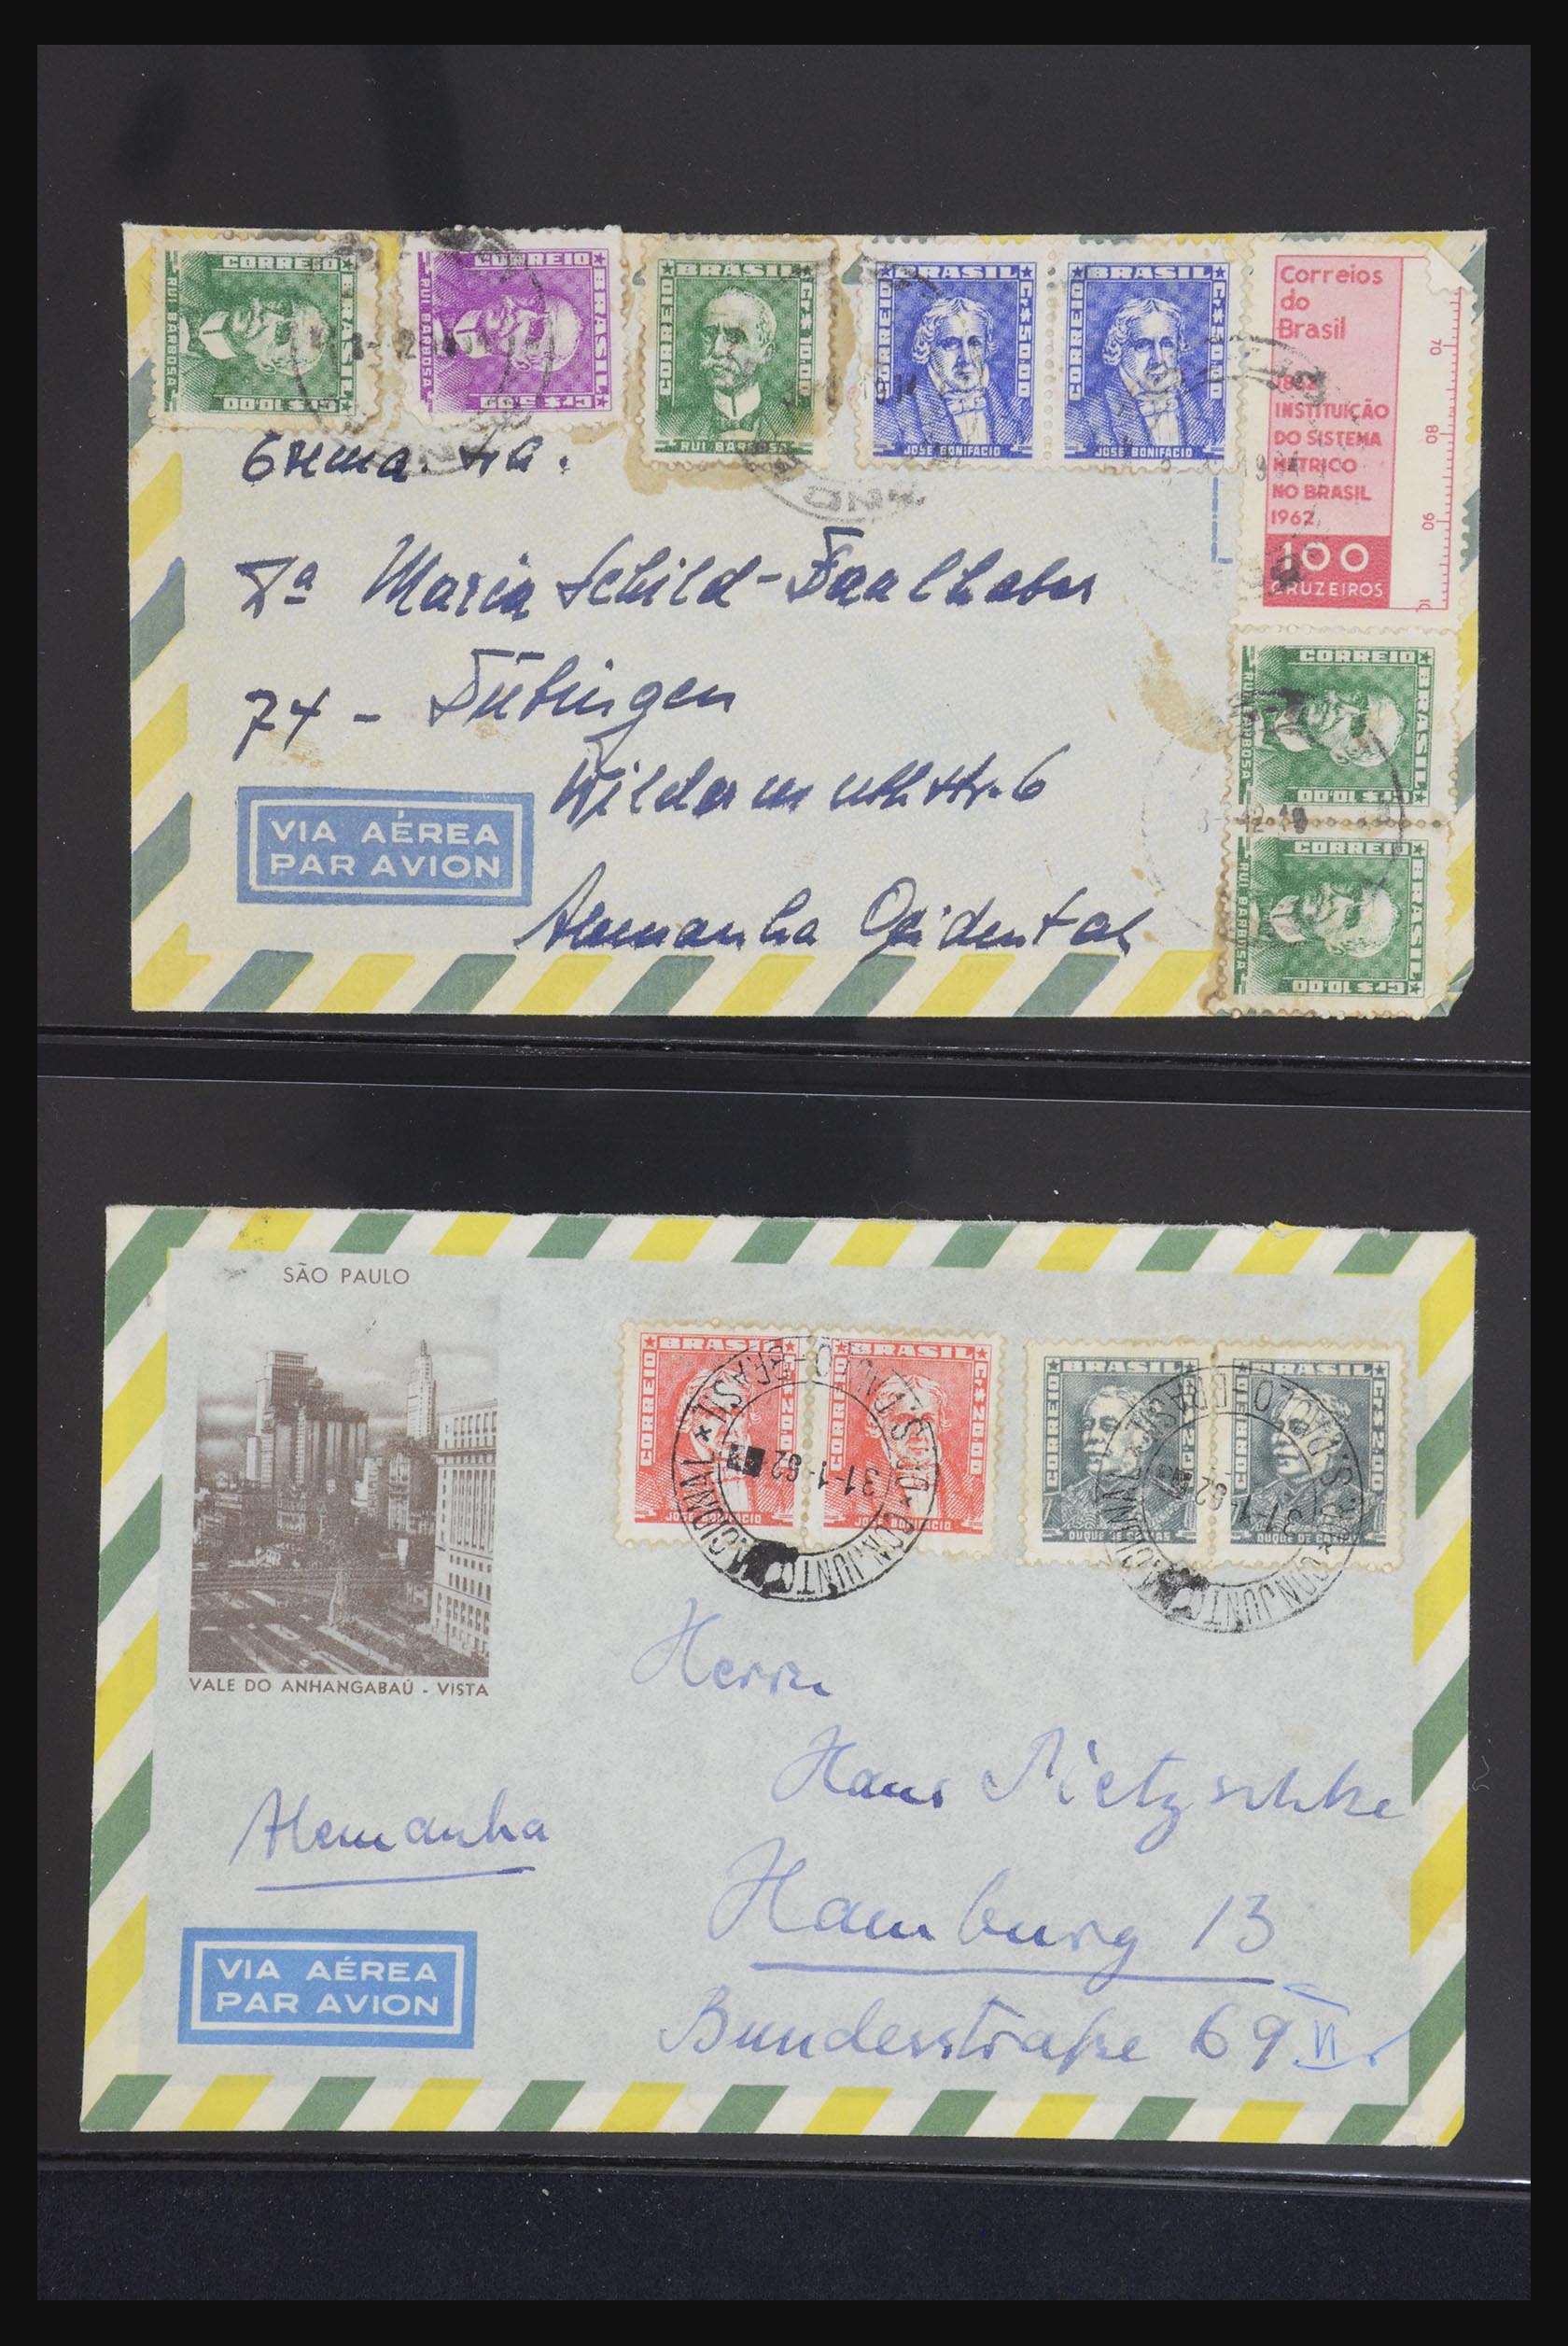 CORREIO
BRASIL
RUI BARBOSA
Cr$ 10,00
CORREIO
BRASIL
RUI BARBOSA
Cr$ 5,50
BRASIL
CORREIO
Cr$ 10,00
RUI BARBOSA
BRASIL
CORREIO
Cr$ 50,00
JOSÉ BONIFACIO
BRASIL
CORREIO
Cr$ 50,00
JOSÉ BONIFACIO
Correios
do
Brasil
1862
INSTITUIÇÃO
DO SISTEMA
MÉTRICO
NO BRASIL
1962
100
CRUZEIROS
70
80
90
Exma. Sra.
Da Maria Schild-Faulhaber
74 - Tübingen
Wildermuthstr. 6
Alemanha Ocidental
VIA AÉREA
PAR AVION
CORREIO
BRASIL
RUI BARBOSA
Cr$ 10,00
CORREIO
BRASIL
RUI BARBOSA
Cr$ 10,00
SÃO PAULO
VALE DO ANHANGABAÚ - VISTA
BRASIL
CORREIO
Cr$ 20,00
JOSÉ BONIFACIO
BRASIL
CORREIO
Cr$ 20,00
JOSÉ BONIFACIO
BRASIL
CORREIO
Cr$ 2,00
DUQUE DE CAXIAS
BRASIL
CORREIO
Cr$ 2,00
DUQUE DE CAXIAS
CONJUNTO NACIONAL * S. PAULO-BRASIL *
31-1-62
CONJUNTO NACIONAL * S. PAULO-BRASIL *
31-1-62
Herrn
Hans Nietzschke
Alemanha
Hamburg 13
Bundesstraße 69 II.
VIA AÉREA
PAR AVION